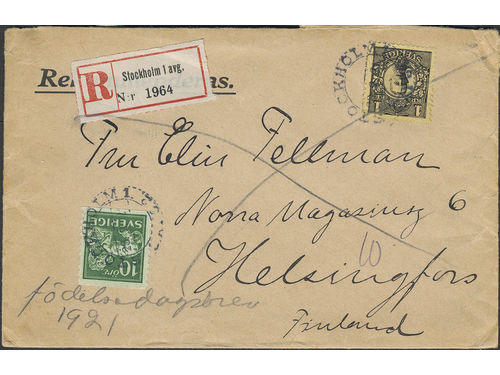 Stockholm 1 avg.
R
N:r 1964
Re
as.
SVERIGE
1
STOCKHOLM 1
Fru Elin Fellman
Norra Magasinsg 6
Helsingfors
Finland
10
STOCKHOLM 1
SVERIGE
ÖRE 10
födelsedagsbrev
1921